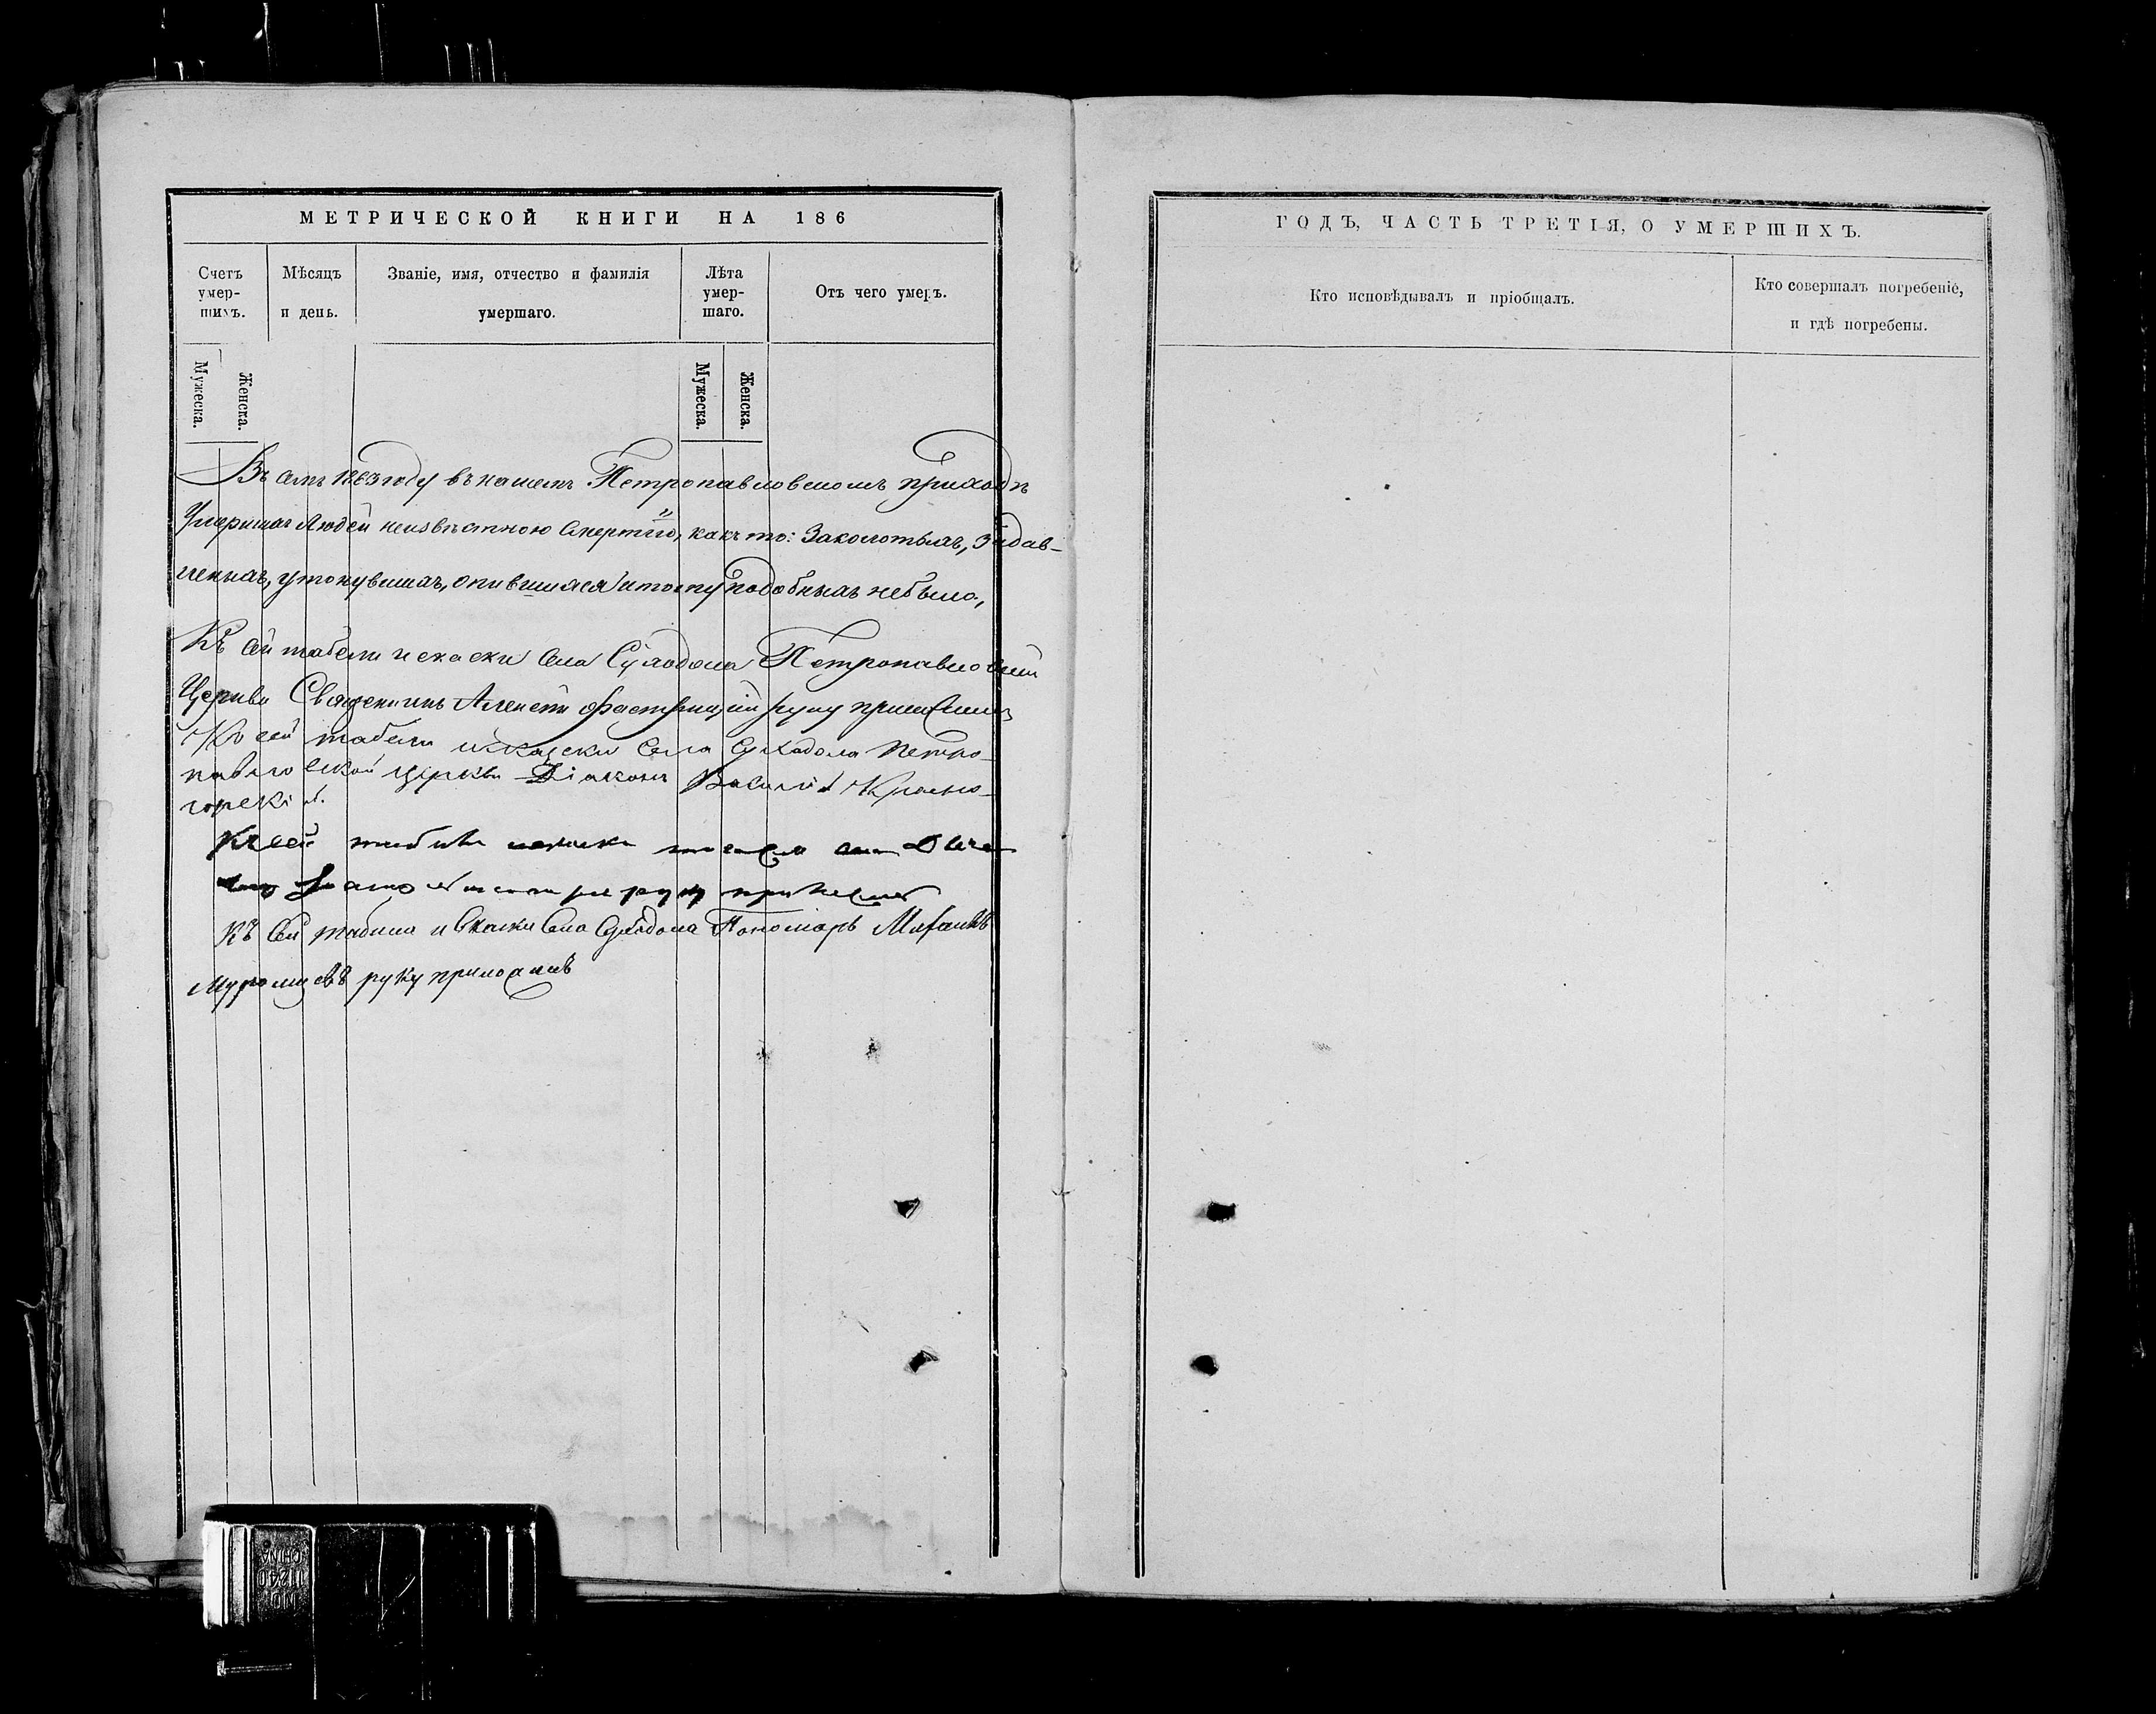 МЕТРИЧЕСКОЙ КНИГИ НА 186
Счетъ умер-шихъ.
Мѣсяцъ и день.
Званіе, имя, отчество и фамилія умершаго.
Лѣта умер-шаго.
Отъ чего умеръ.
Мужеска.
Женска.
Мужеска.
Женска.
Въ семъ 1863 году въ нашемъ Петропавловскомъ приходѣ
Умершихъ людей неизвѣстною смертію, какъ то: Заколотыхъ, задав-
ленныхъ, утонувшихъ, опившихся и тому подобныхъ небыло,
Къ сей табели и скаски села Суходола Петропавловской
Церкви Священникъ Алексей руку приложилъ
Ко сей табели и скаски Села Суходола Петро-
павловской церкви Діаконъ Василій Красно-
горскій.
Къ сей руку
Къ сей табели и скаски села Суходола Пономарь Михаилъ
Муромцевъ руку приложилъ
ГОДЪ, ЧАСТЬ ТРЕТІЯ, О УМЕРШИХЪ.
Кто исповѣдывалъ и пріобщалъ.
Кто совершалъ погребеніе, и гдѣ погребены.
NO 11240
CHINA